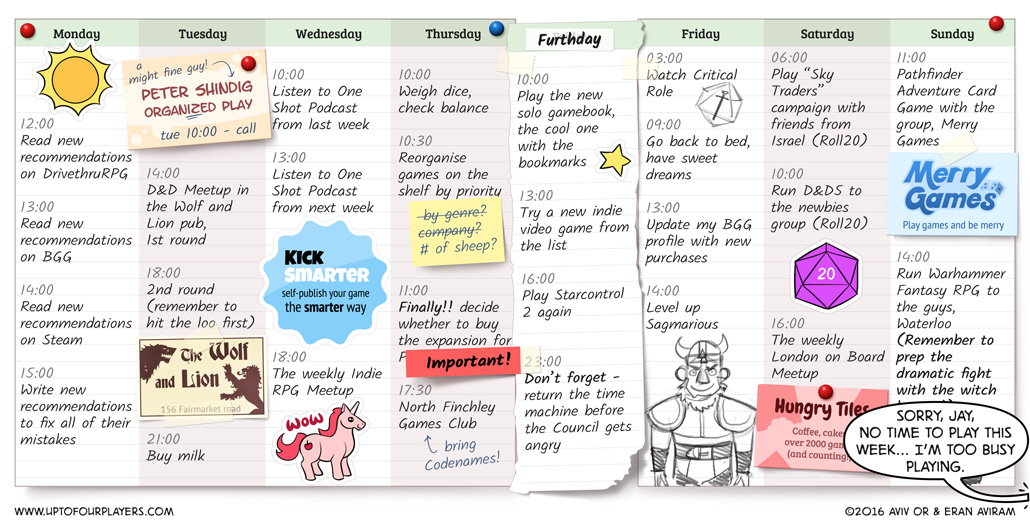 Monday
12:00
Read new
recommendations
on DrivethruRPG
13:00
Read new
recommendations
on BGG
14:00
Read new
recommendations
on Steam
15:00
Write new
recommendations
to fix all of their
mistakes
Tuesday
a
might fine guy!
PETER SHINDIG
ORGANIZED PLAY
tue 10:00 - call
14:00
D&D Meetup in
the Wolf and
Lion pub,
1st round
18:00
2nd round
(remember to
hit the loo first)
The Wolf
and Lion
156 Fairmarket road
21:00
Buy milk
Wednesday
10:00
Listen to One
Shot Podcast
from last week
13:00
Listen to One
Shot Podcast
from next week
KICK
SMARTER
self-publish your game
the smarter way
18:00
The weekly Indie
RPG Meetup
WOW
Thursday
10:00
Weigh dice,
check balance
10:30
Reorganise
games on the
shelf by priority
by genre?
company?
# of sheep?
11:00
Finally!! decide
whether to buy
the expansion for
Important!
17:30
North Finchley
Games Club
bring
Codenames!
Furthday
10:00
Play the new
solo gamebook,
the cool one
with the
bookmarks
13:00
Try a new indie
video game from
the list
16:00
Play Starcontrol
2 again
23:00
Don't forget -
return the time
machine before
the Council gets
angry
Friday
03:00
Watch Critical
Role
09:00
Go back to bed,
have sweet
dreams
13:00
Update my BGG
profile with new
purchases
14:00
Level up
Sagmarious
Saturday
06:00
Play "Sky
Traders"
campaign with
friends from
Israel (Roll20)
10:00
Run D&D5 to
the newbies
group (Roll20)
20
16:00
The weekly
London on Board
Meetup
Hungry Tiles
Coffee, cake
over 2000 gam
(and counting!
Sunday
11:00
Pathfinder
Adventure Card
Game with the
group, Merry
Games
Merry
Games
Play games and be merry
14:00
Run Warhammer
Fantasy RPG to
the guys,
Waterloo
(Remember to
prep the
dramatic fight
with the witch
SORRY, JAY,
NO TIME TO PLAY THIS
WEEK... I'M TOO BUSY
PLAYING.
WWW.UPTOFOURPLAYERS.COM
©2016 AVIV OR & ERAN AVIRAM